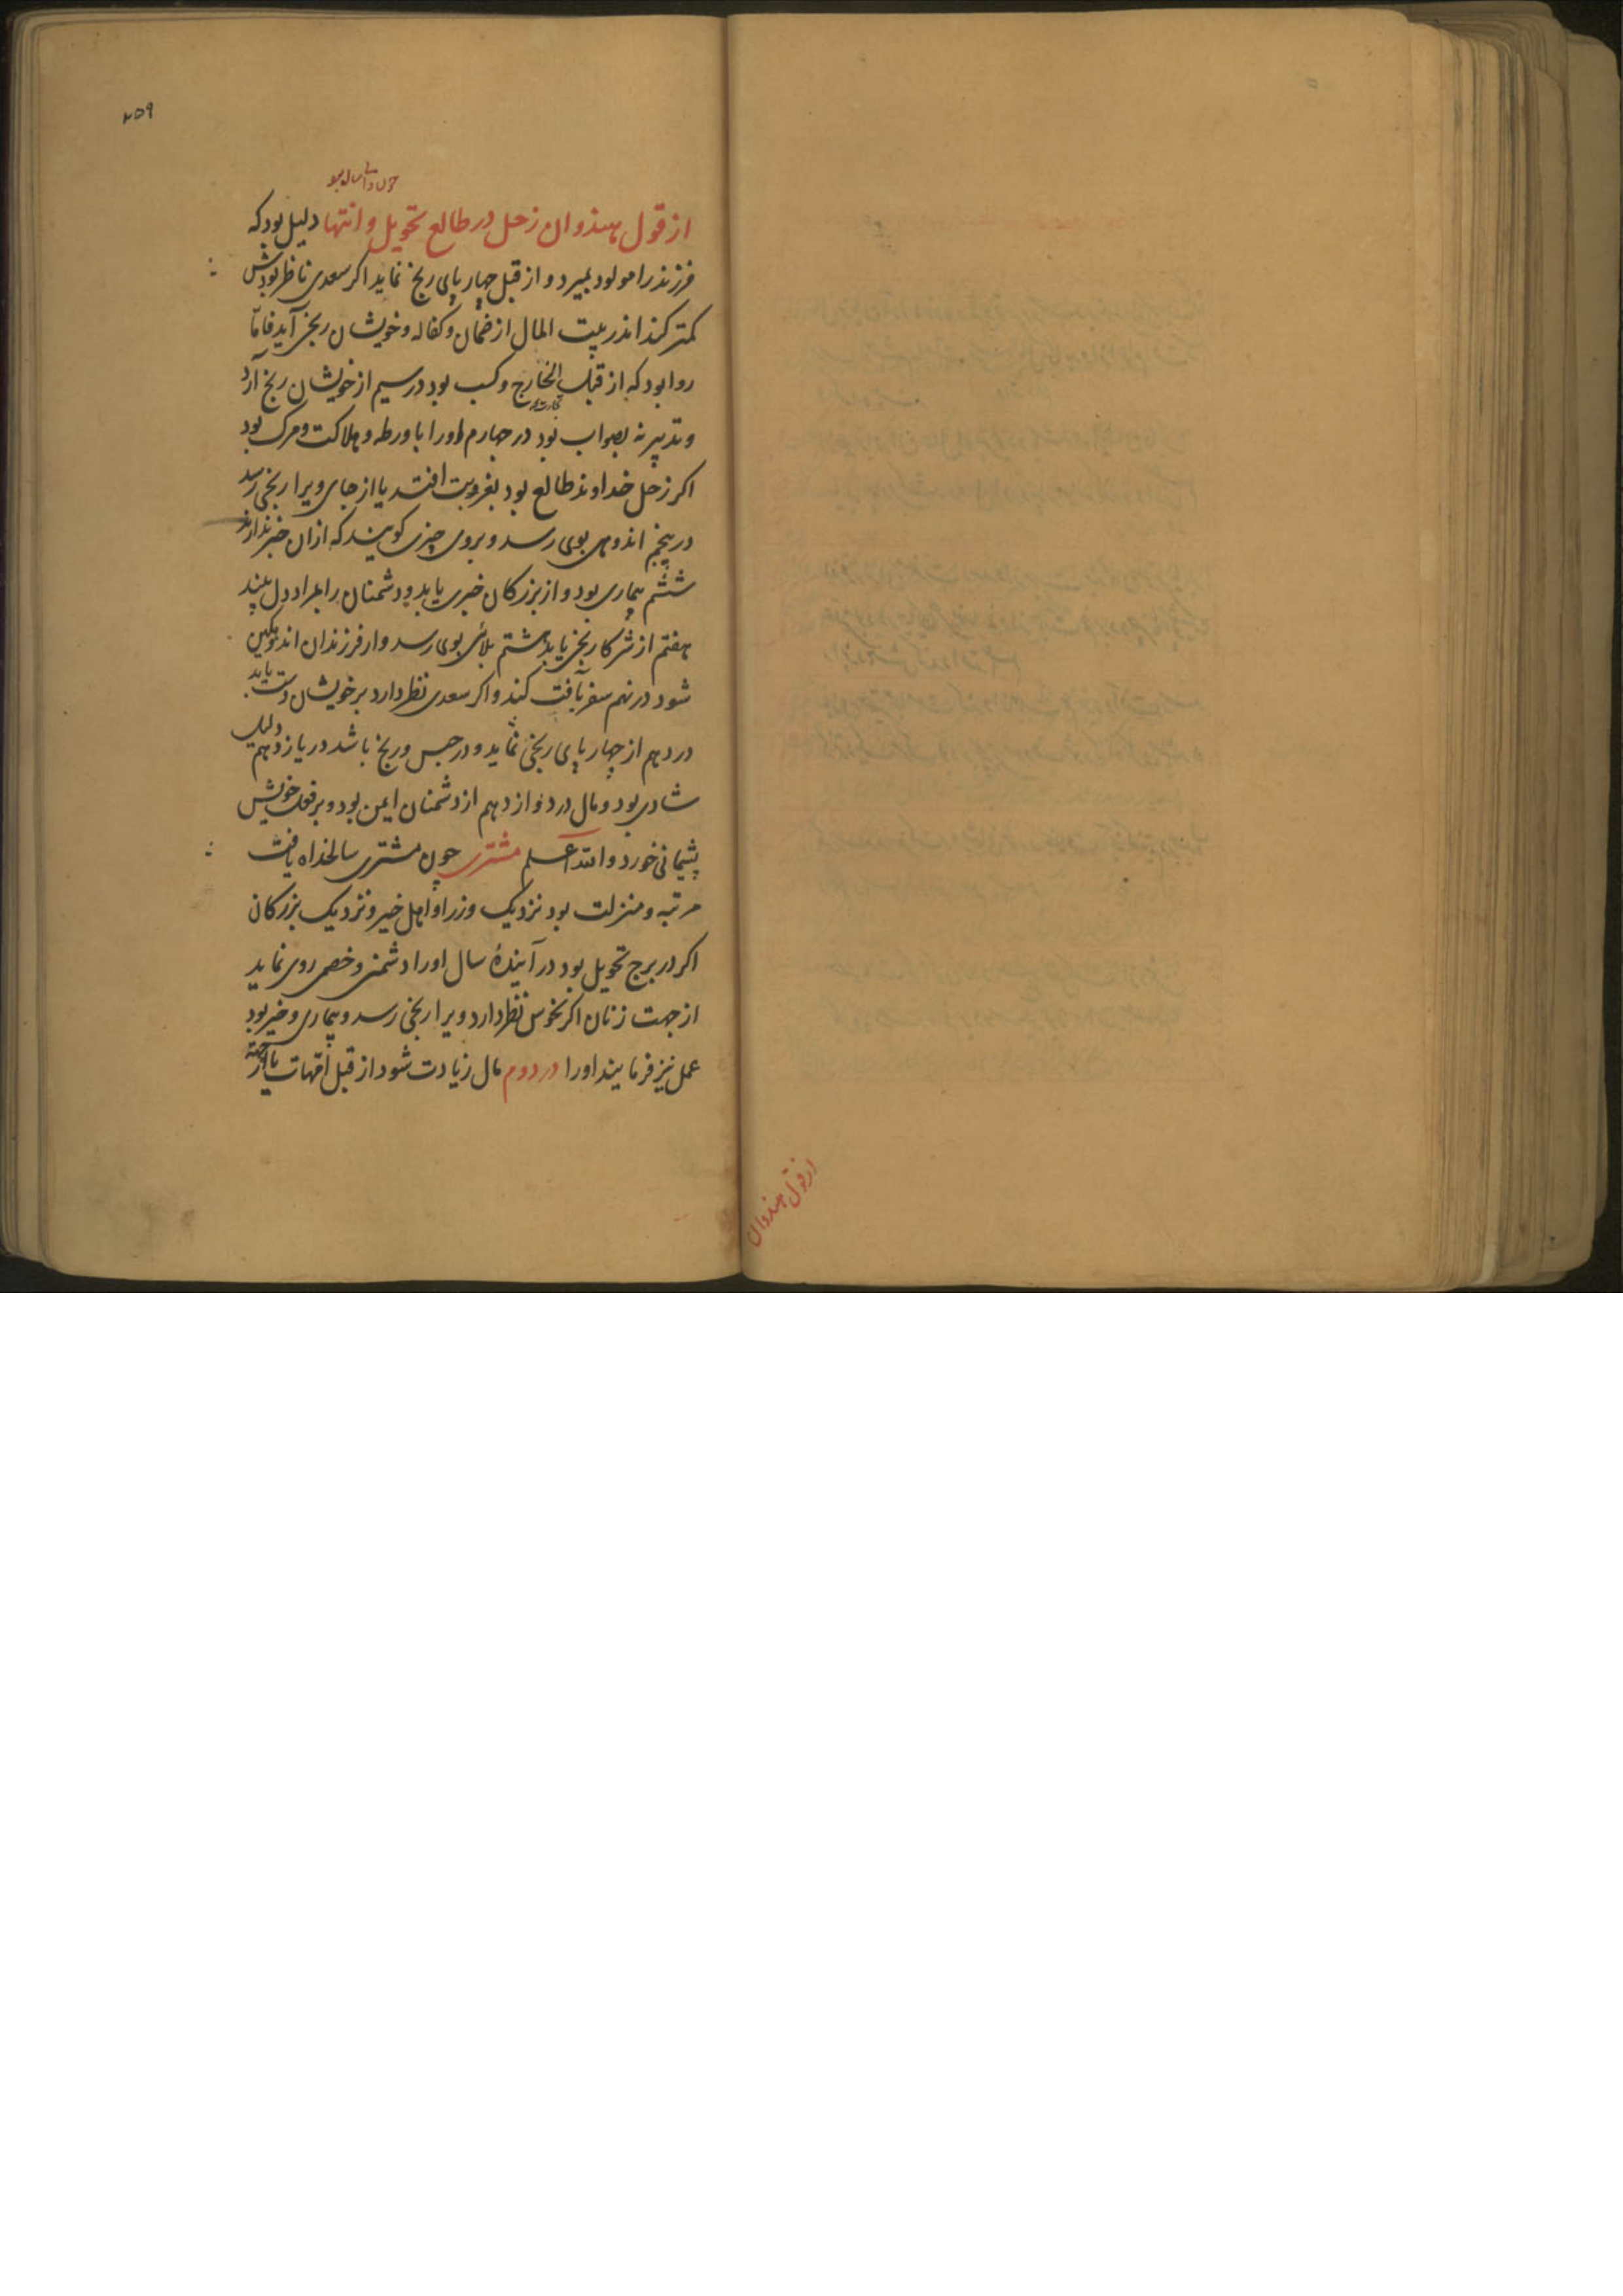 ۲۵۹
از قول هندوان زحل در طالع تحویل و انتها دلیل بود که
فرزند را مولود بمیرد و از قبل چهار پای رنج نماید اکر سعدی ناظر بودش
کمتر کند اندر بیت المال از ضمان و کفاله و خویشان رنجی آید فاما
روا بود که از قبل الخارج و کسب بود در سیم از خویشان رنج آرد
و تدبیر نه بصواب بود در چهارم او را با ورطه و هلاکت و مرک بود
اکر زحل خداوند طالع بود بغروبت افتد یا از جای ویرا رنجی رسد
در پنجم اندوهی بوی رسد و بروی چیزی کویند که ازان خبر ندارند
ششم بیماری بود و از بزرکان خبری یابد و دشمنان را بمراد دل بیند
هفتم از شرکا رنجی یابد هشتم بلائی بوی رسد و از فرزندان اندوهکین
شود در نهم سفر بآفت کند و اکر سعدی نظر دارد بر خویشان دست یابد
در دهم از چهار پای رنجی نماید و در حبس و رنج باشد در یازدهم دلیل
شادی بود و مال در دوازدهم از دشمنان ایمن بود و بر فعل خویش
پشیمانی خورد والله اعلم مشتری چون مشتری سالخداه یافت
مرتبه و منزلت بود نزدیک وزرا و اهل خیر و نزدیک بزرکان
اکر در برج تحویل بود در آینده سال او را دشمنی و خصمی روی نماید
از جهت زنان اکر نحوس نظر دارد ویرا رنجی رسد و بیماری و خیر بود
عمل نیز فرمایند او را در دوم مال زیادت شود از قبل امهات یا از
از قول هندوان